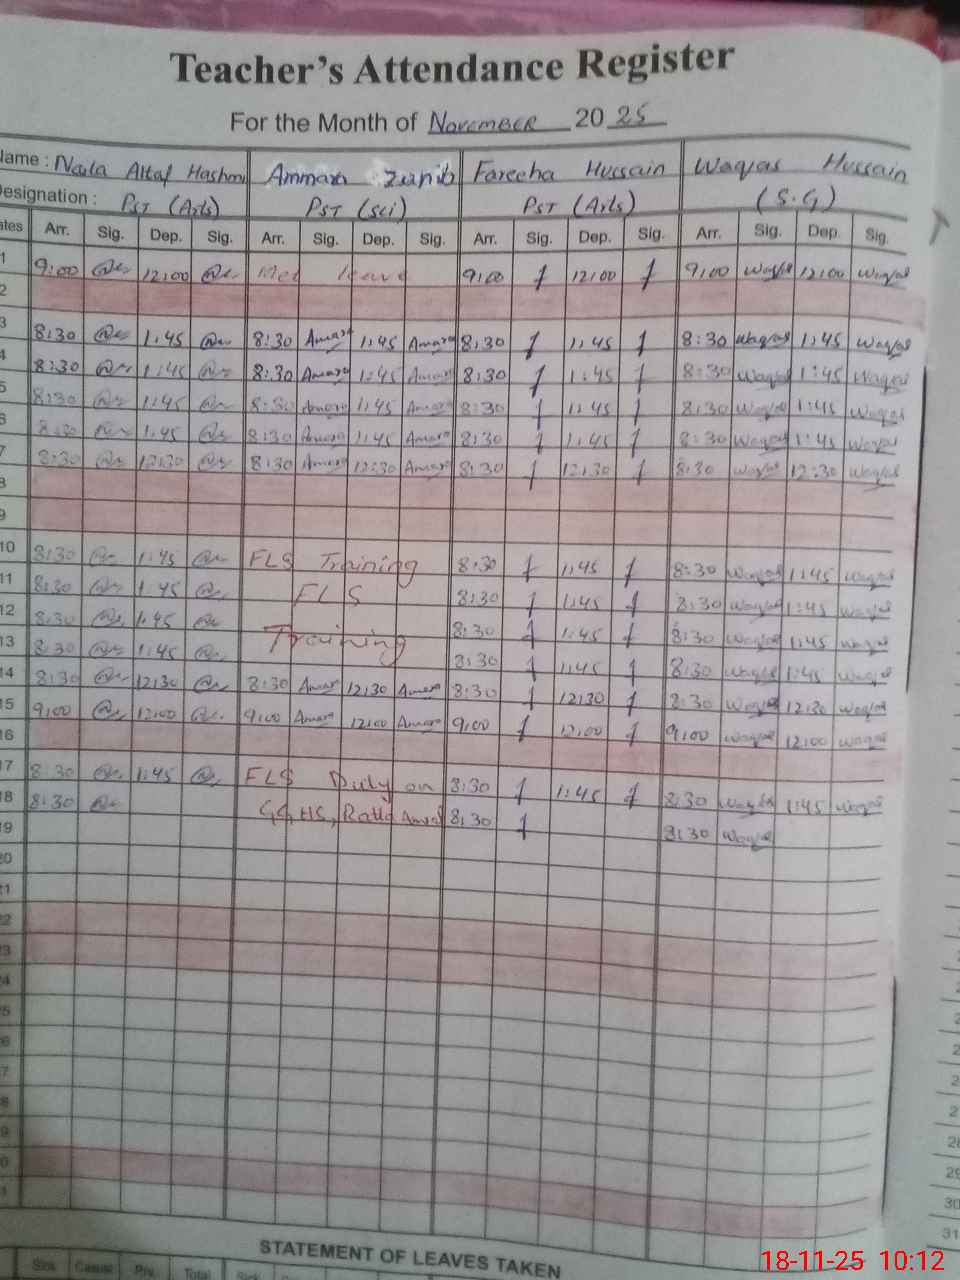 Teacher's Attendance Register
For the Month of November 20 25
Name : Naila Altaf Hashmi Ammara Zunib Fareeha Hussain Waqas Hussain
Designation : PST (Arts) PST (Sci) PST (Arts) (S.G)
Dates Arr. Sig. Dep. Sig. Arr. Sig. Dep. Sig. Arr. Sig. Dep. Sig. Arr. Sig. Dep. Sig.
1 9:00 12:00 leave 9:00 12:00 9:00 Waqas 12:00 Waqas
2
3 8:30 1:45 8:30 Amara 1:45 Amara 8:30 1:45 8:30 Waqas 1:45 Waqas
4 8:30 1:45 8:30 Amara 1:45 Amara 8:30 1:45 8:30 Waqas 1:45 Waqas
5 8:30 1:45 8:30 Amara 1:45 Amara 8:30 1:45 8:30 Waqas 1:45 Waqas
6 8:30 1:45 8:30 Amara 1:45 Amara 8:30 1:45 8:30 Waqas 1:45 Waqas
7 8:30 12:30 8:30 Amara 12:30 Amara 8:30 12:30 8:30 Waqas 12:30 Waqas
8
9
10 8:30 1:45 FLS Training 8:30 1:45 8:30 Waqas 1:45 Waqas
11 8:30 1:45 FLS 8:30 1:45 8:30 Waqas 1:45 Waqas
12 8:30 1:45 Training 8:30 1:45 8:30 Waqas 1:45 Waqas
13 8:30 1:45 8:30 1:45 8:30 Waqas 1:45 Waqas
14 8:30 12:30 8:30 Amara 12:30 Amara 8:30 12:30 8:30 Waqas 12:30 Waqas
15 9:00 12:00 9:00 Amara 12:00 Amara 9:00 12:00 9:00 Waqas 12:00 Waqas
16
17 8:30 1:45 FLS Duty on 8:30 1:45 8:30 Waqas 1:45 Waqas
18 8:30 GGHS, Amara 8:30 8:30 Waqas
19
20
21
22
23
24
25
26
27
28
29
30
31
STATEMENT OF LEAVES TAKEN
Sick Casual Prv. Total Sick
18-11-25 10:12